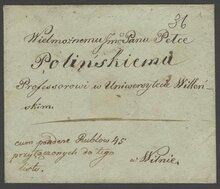 36
Wielmożnemu Jmć Panu Pełce
Polinskiemu
Professorowi w Uniwersytecie Wileń-
skim.
cum pondere Rublow 45
przyłączonych do tego
listu.
w Wilnie.